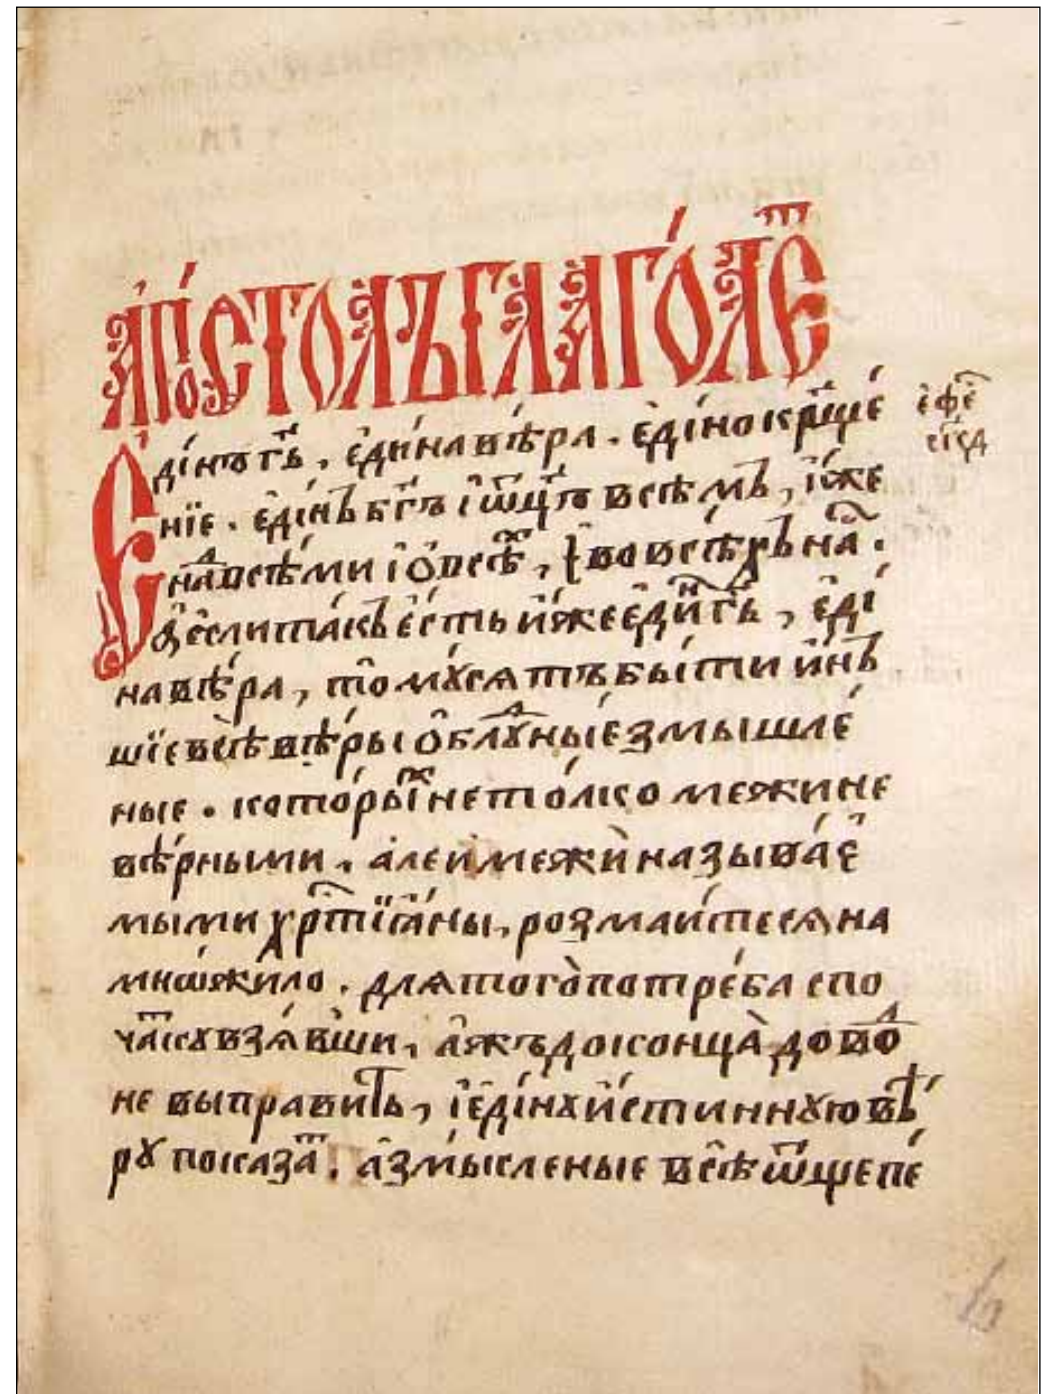 АПОСТОЛЪ ГЛАГОЛЕТ
Единъ гь҃. едина вѣра. едіно крщ҃е
ніе. едінъ бг҃ъ і ѿц҃ъ всѣмъ, иже
над всѣми і о всѣх, і во всѣхъ нас.
А если такъ есть иже един гь҃, еді
на вѣра, то мусятъ быти инъ
шіе всѣ вѣры облудные змышле
ные. которых не толко межи не
вѣрными, але и межи называе
мыми хрⷭ҇тіаны, розмаите ся на
мнѡжило. для того потреба спо
чатку взявши, ажъ до конца довод
не выправить, і едіну истинную вѣ
ру показат. а змысленые всѣ ѿщепе
ефес